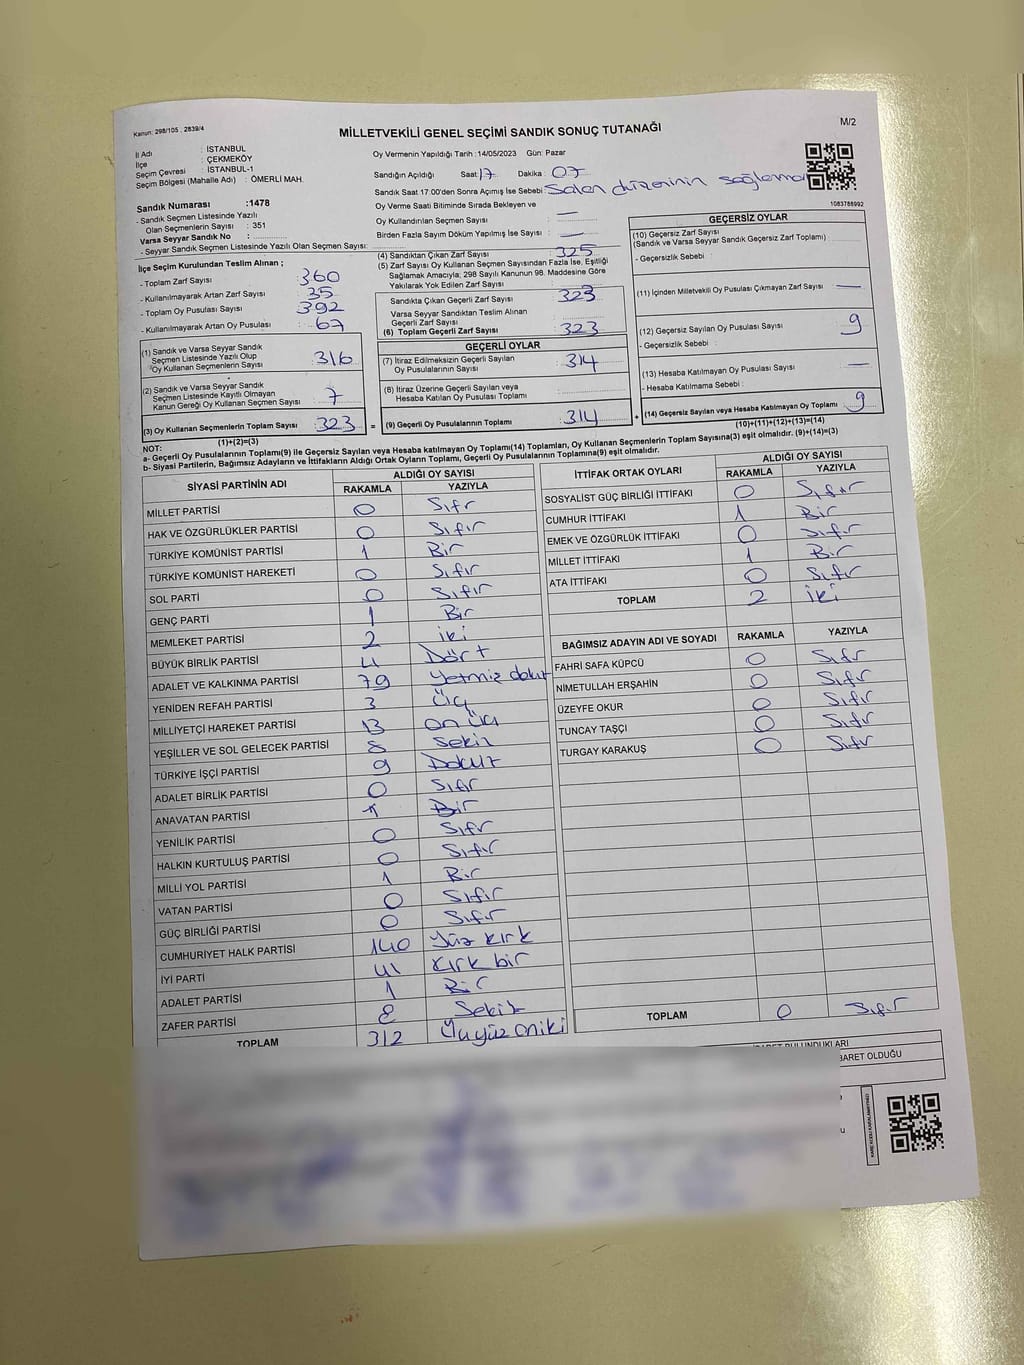 Kanun: 298/105 , 2839/4
MİLLETVEKİLİ GENEL SEÇİMİ SANDIK SONUÇ TUTANAĞI
M/2
İl Adı : İSTANBUL
İlçe : ÇEKMEKÖY
Seçim Çevresi : İSTANBUL-1
Seçim Bölgesi (Mahalle Adı) : ÖMERLİ MAH.
Oy Vermenin Yapıldığı Tarih : 14/05/2023 Gün: Pazar
Sandığın Açıldığı Saat 17 Dakika : 07
Sandık Saat 17:00'den Sonra Açımış İse Sebebi : Salon düzeninin sağlanma
1083788992
Sandık Numarası :1478
- Sandık Seçmen Listesinde Yazılı
Olan Seçmenlerin Sayısı : 351
Varsa Seyyar Sandık No :
- Seyyar Sandık Seçmen Listesinde Yazılı Olan Seçmen Sayısı:
Oy Verme Saati Bitiminde Sırada Bekleyen ve
Oy Kullandırılan Seçmen Sayısı : —
Birden Fazla Sayım Döküm Yapılmış İse Sayısı : —
İlçe Seçim Kurulundan Teslim Alınan ;
- Toplam Zarf Sayısı : 360
- Kullanılmayarak Artan Zarf Sayısı : 35
- Toplam Oy Pusulası Sayısı : 392
- Kullanılmayarak Artan Oy Pusulası : 67
(1) Sandık ve Varsa Seyyar Sandık
Seçmen Listesinde Yazılı Olup
Oy Kullanan Seçmenlerin Sayısı : 316
(2) Sandık ve Varsa Seyyar Sandık
Seçmen Listesinde Kayıtlı Olmayan
Kanun Gereği Oy Kullanan Seçmen Sayısı : 7
(3) Oy Kullanan Seçmenlerin Toplam Sayısı : 323
(1)+(2)=(3)
(4) Sandıktan Çıkan Zarf Sayısı : 325
(5) Zarf Sayısı Oy Kullanan Seçmen Sayısından Fazla İse, Eşitliği
Sağlamak Amacıyla; 298 Sayılı Kanunun 98. Maddesine Göre
Yakılarak Yok Edilen Zarf Sayısı :
Sandıkta Çıkan Geçerli Zarf Sayısı : 323
Varsa Seyyar Sandıktan Teslim Alınan
Geçerli Zarf Sayısı :
(6) Toplam Geçerli Zarf Sayısı : 323
GEÇERLİ OYLAR
(7) İtiraz Edilmeksizin Geçerli Sayılan
Oy Pusulalarının Sayısı : 314
(8) İtiraz Üzerine Geçerli Sayılan veya
Hesaba Katılan Oy Pusulası Toplamı :
= (9) Geçerli Oy Pusulalarının Toplamı : 314 +
GEÇERSİZ OYLAR
(10) Geçersiz Zarf Sayısı
(Sandık ve Varsa Seyyar Sandık Geçersiz Zarf Toplamı) :
- Geçersizlik Sebebi :
(11) İçinden Milletvekili Oy Pusulası Çıkmayan Zarf Sayısı : —
(12) Geçersiz Sayılan Oy Pusulası Sayısı : 9
- Geçersizlik Sebebi :
(13) Hesaba Katılmayan Oy Pusulası Sayısı : —
- Hesaba Katılmama Sebebi :
(14) Geçersiz Sayılan veya Hesaba Katılmayan Oy Toplamı : 9
(10)+(11)+(12)+(13)=(14)
NOT:
a- Geçerli Oy Pusulalarının Toplamı(9) ile Geçersiz Sayılan veya Hesaba Katılmayan Oy Toplamı(14) Toplamları, Oy Kullanan Seçmenlerin Toplam Sayısına(3) eşit olmalıdır. (9)+(14)=(3)
b- Siyasi Partilerin, Bağımsız Adayların ve İttifakların Aldığı Ortak Oyların Toplamı, Geçerli Oy Pusulalarının Toplamına(9) eşit olmalıdır.
SİYASİ PARTİNİN ADI ALDIĞI OY SAYISI
RAKAMLA YAZIYLA
MİLLET PARTİSİ 0 Sıfır
HAK VE ÖZGÜRLÜKLER PARTİSİ 0 Sıfır
TÜRKİYE KOMÜNİST PARTİSİ 1 Bir
TÜRKİYE KOMÜNİST HAREKETİ 0 Sıfır
SOL PARTİ 0 Sıfır
GENÇ PARTİ 1 Bir
MEMLEKET PARTİSİ 2 iki
BÜYÜK BİRLİK PARTİSİ 4 Dört
ADALET VE KALKINMA PARTİSİ 79 Yetmiz dokuz
YENİDEN REFAH PARTİSİ 3 Üç
MİLLİYETÇİ HAREKET PARTİSİ 13 on üç
YEŞİLLER VE SOL GELECEK PARTİSİ 8 Sekiz
TÜRKİYE İŞÇİ PARTİSİ 9 Dokuz
ADALET BİRLİK PARTİSİ 0 Sıfır
ANAVATAN PARTİSİ 1 Bir
YENİLİK PARTİSİ 0 Sıfır
HALKIN KURTULUŞ PARTİSİ 0 Sıfır
MİLLİ YOL PARTİSİ 1 Bir
VATAN PARTİSİ 0 Sıfır
GÜÇ BİRLİĞİ PARTİSİ 0 Sıfır
CUMHURİYET HALK PARTİSİ 140 Yüz kırk
İYİ PARTİ 41 Kırk bir
ADALET PARTİSİ 1 Bir
ZAFER PARTİSİ 8 Sekiz
TOPLAM 312 Üçyüz oniki
İTTİFAK ORTAK OYLARI ALDIĞI OY SAYISI
RAKAMLA YAZIYLA
SOSYALİST GÜÇ BİRLİĞİ İTTİFAKI 0 Sıfır
CUMHUR İTTİFAKI 1 Bir
EMEK VE ÖZGÜRLÜK İTTİFAKI 0 Sıfır
MİLLET İTTİFAKI 1 Bir
ATA İTTİFAKI 0 Sıfır
TOPLAM 2 iki
BAĞIMSIZ ADAYIN ADI VE SOYADI RAKAMLA YAZIYLA
FAHRİ SAFA KÜPCÜ 0 Sıfır
NİMETULLAH ERŞAHİN 0 Sıfır
ÜZEYFE OKUR 0 Sıfır
TUNCAY TAŞÇI 0 Sıfır
TURGAY KARAKUŞ 0 Sıfır
TOPLAM 0 Sıfır
BULUNDUKLARI
BARET OLDUĞU